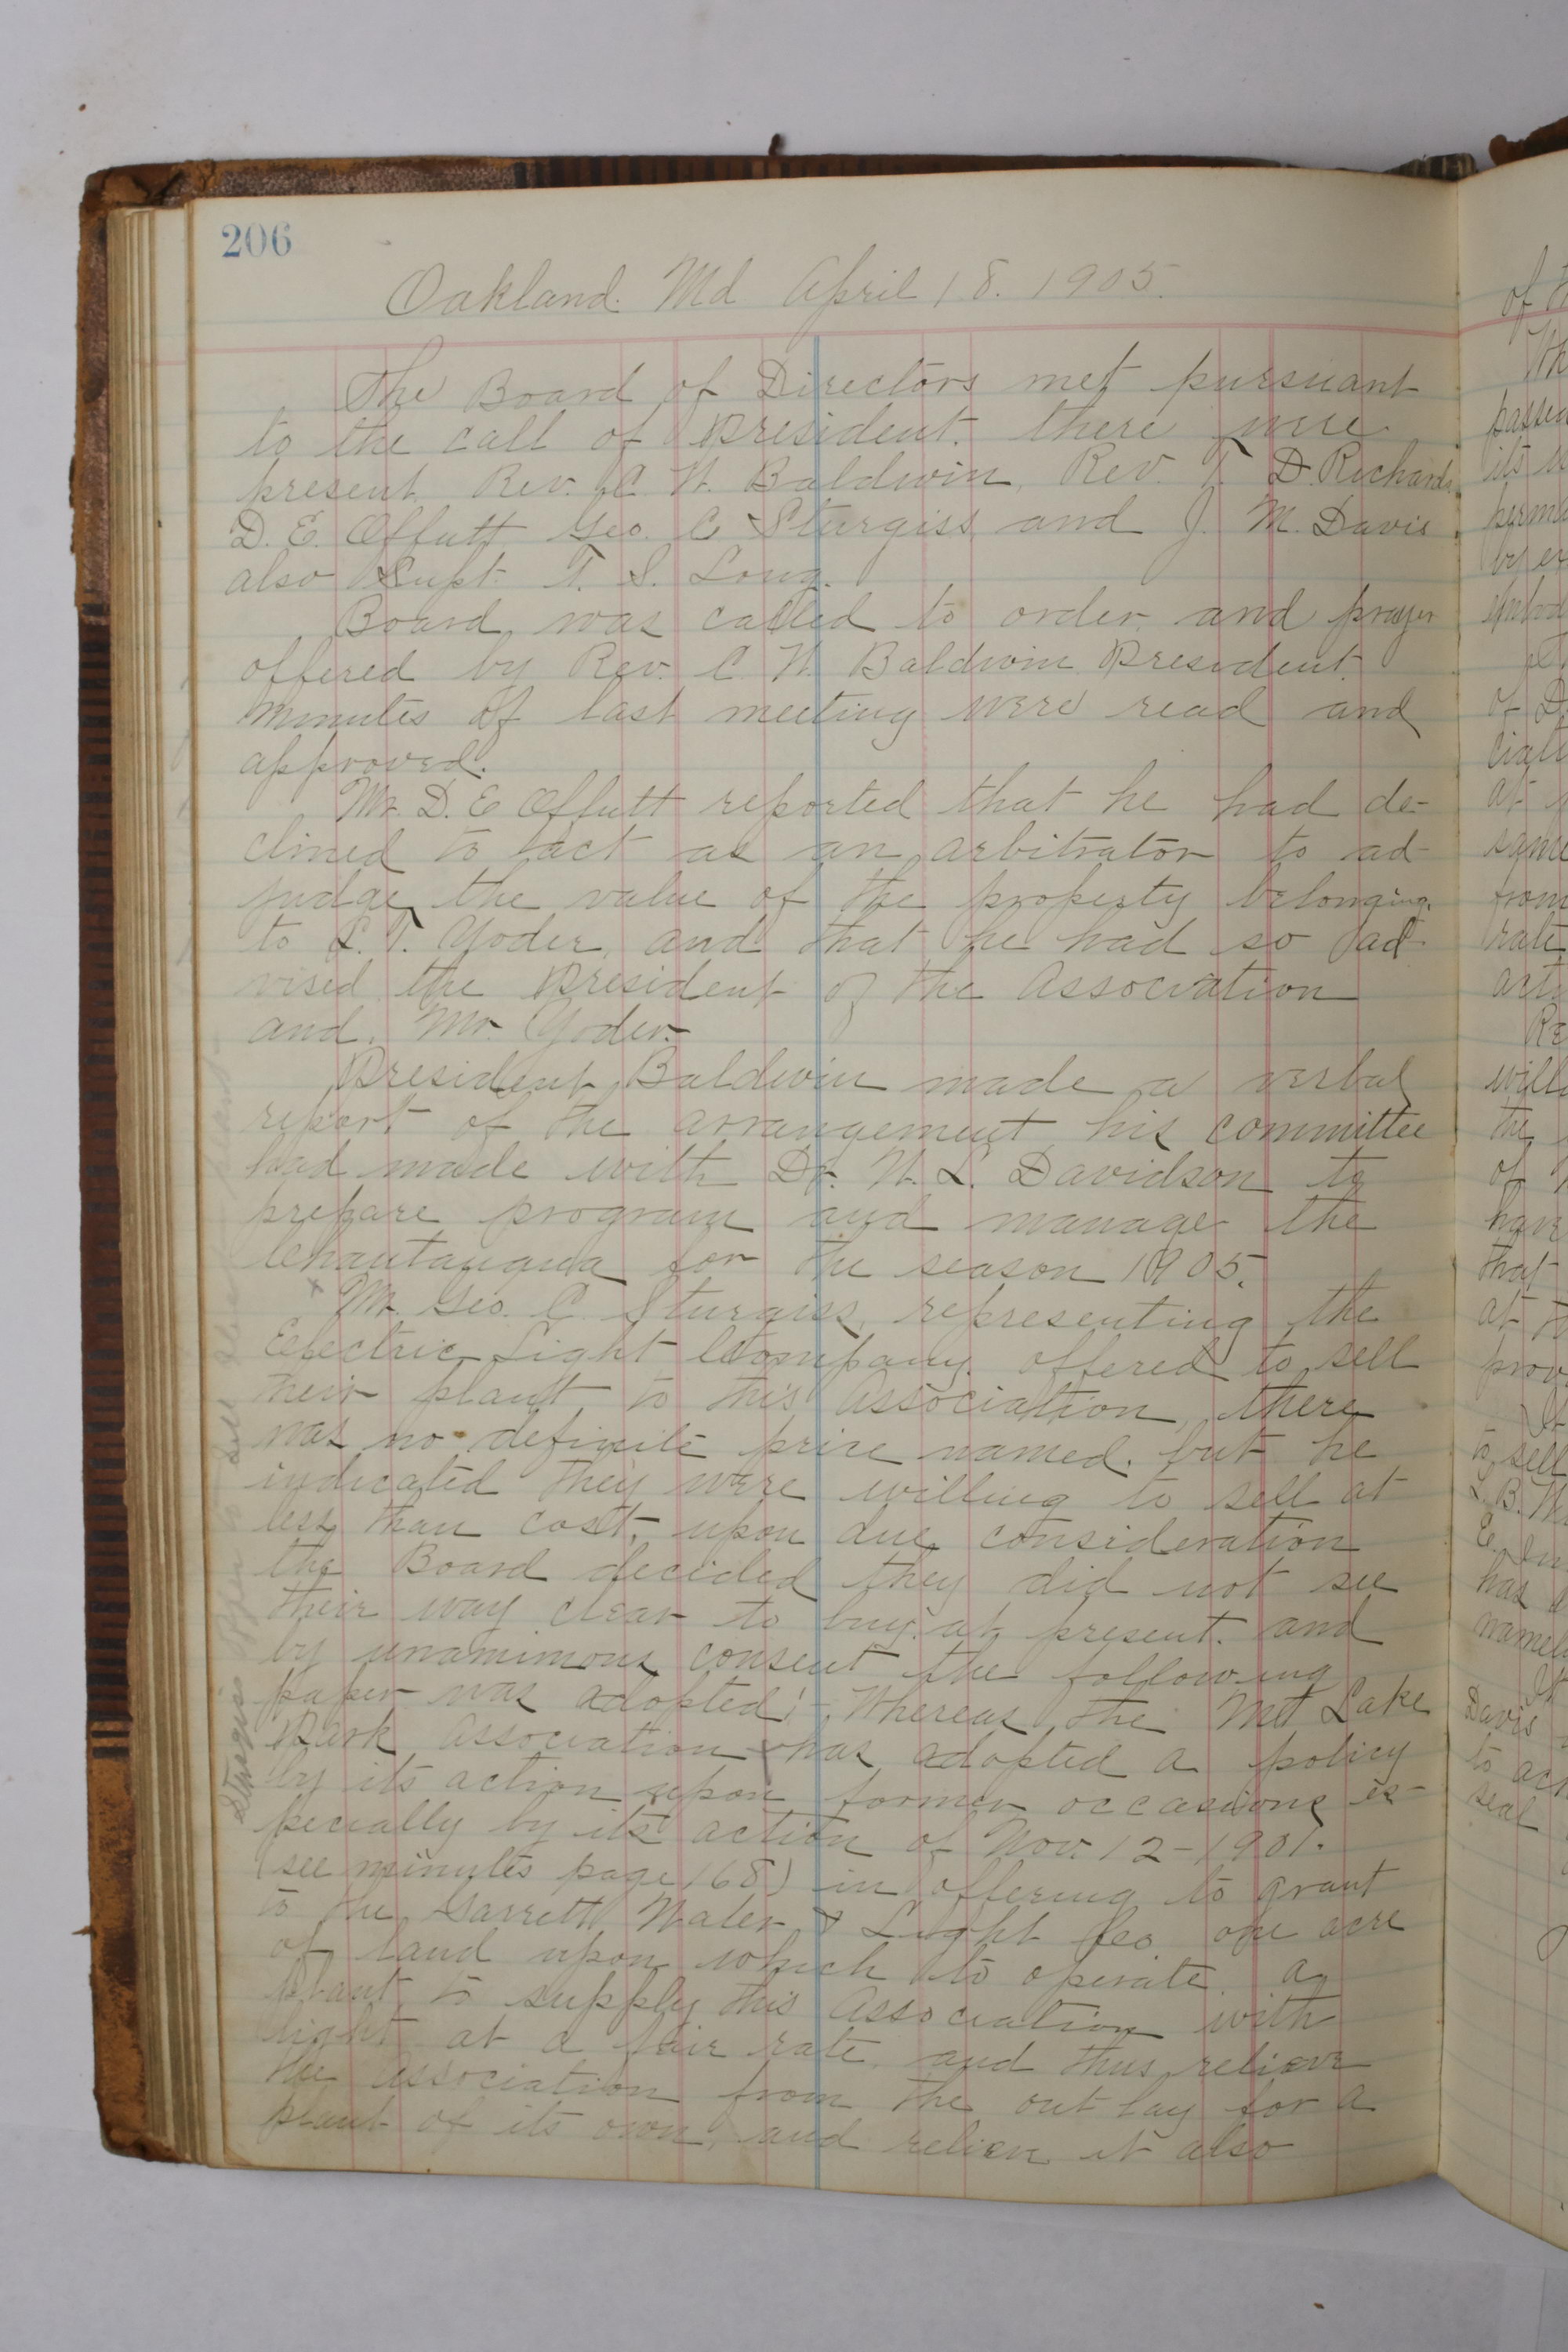 206
Oakland. Md April 18. 1905.
The Board of Directors met pursuant
to the call of President. there were
present Rev. C. W. Baldwin, Rev. T. D. Richards
D. E. Offutt Geo. C Sturgiss and J. M. Davis
also Supt. T. S. Long.
Board was called to order and prayer
offered by Rev. C. W. Baldwin President.
Minutes of last meeting were read and
approved.
Mr. D. E Offutt reported that he had de-
clined to act as an arbitrator to ad-
judge the value of the property belonging
to L. T. Yoder, and that he had so ad-
vised the President of the Association
and Mr. Yoder.
President Baldwin made a verbal
report of the arrangement his committee
had made with Dr. W. L. Davidson to
prepare program and manage the
Chautauqua for the season 1905.
x Mr. Geo. C. Sturgiss, representing the
Electric Light Company offered to sell
their plant to this Association, there
was no definite price named. but he
indicated they were willing to sell at
less than cost, upon due consideration
the Board decided they did not see
their way clear to buy at present. and
by unamimous consent the following
paper was adopted:- Whereas, the Mt Lake
Park Association has adopted a policy
by its action upon former occasions es-
pecially by its action of Nov. 12-1901.
(see minutes page 168) in offering to grant
to the Garrett Water & Light Co. one acre
of land upon which to operate a
plant to supply this Association with
light at a fair rate and thus relieve
the Association from the out lay for a
plant of its own, and relieve it also
Sturgiss Offer to Sell
of
Wh
passed
its
by ex
of D
at
same
from
rate
acti
Re
will
the
of
have
that
at
prov
to sell
L. B.
E.
has
namely
Davis
to
seal